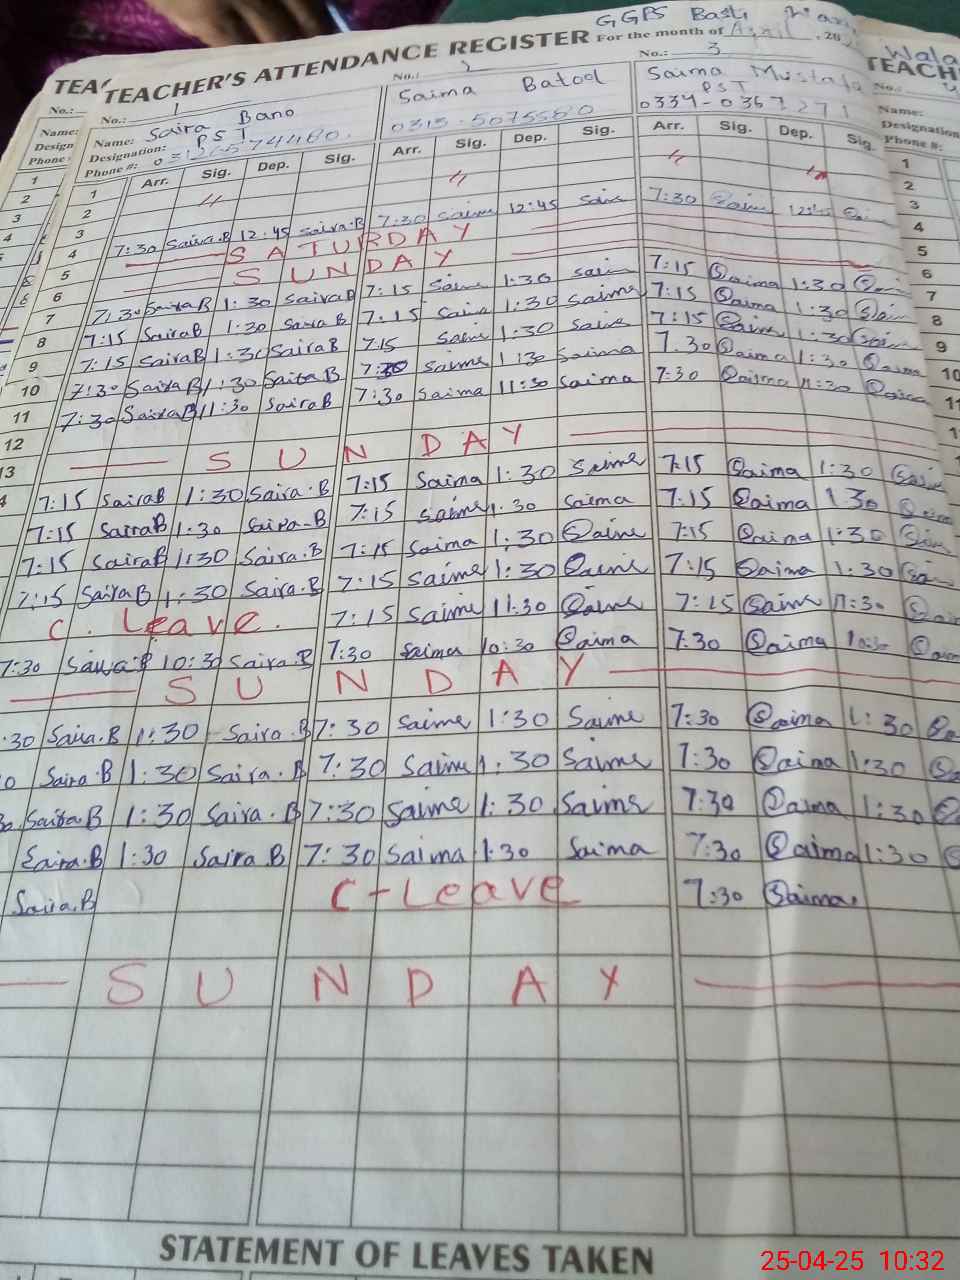 GGPS Basti
TEACHER'S ATTENDANCE REGISTER For the month of April, 20
No.: 1 No.: 2 No.: 3
Name: Saira Bano Saima Batool Saima Mustafa
Designation: PST PST
Phone #: 0313-5075580 0334-0367271
Arr. Sig. Dep. Sig. Arr. Sig. Dep. Sig. Arr. Sig. Dep. Sig.
1
2 〃 〃 〃 〃
3
4 7:30 Saira.B 12:45 Saira.B 7:30 Saima 12:45 Saim 7:30 Saim 12:45 Sai
5 SATURDAY
6 SUNDAY
7 7:30 Saira B 1:30 Saira B 7:15 Saim 1:30 Saim 7:15 Saima 1:30 Sai
8 7:15 Saira B 1:30 Saira B 7:15 Saim 1:30 Saima 7:15 Saima 1:30 Saim
9 7:15 Saira B 1:30 Saira B 7:15 Saim 1:30 Saim 7:15 Saim 1:30 Saim
10 7:30 Saira B 1:30 Saira B 7:30 Saime 1:30 Saima 7.30 Saima 1:30 Saima
11 7:30 Saira B 11:30 Saira B 7:30 Saima 11:30 Saima 7:30 Saima 11:30 Saima
12
13 SUNDAY
7:15 Saira B 1:30 Saira.B 7:15 Saima 1:30 Saime 7:15 Saima 1:30 Saim
7:15 Saira B 1:30 Saira-B 7:15 Saime 1.30 Saima 7:15 Saima 1 30 Saim
7:15 Saira B 1:30 Saira.B 7:15 Saima 1:30 Saime 7:15 Saima 1:30 Saim
7:15 Saira B 1:30 Saira.B 7:15 Saime 1:30 Saime 7:15 Saima 1:30 Sai
C. Leave. 7:15 Saime 11:30 Saime 7:15 Saima 11:30 Sai
7:30 Saira.B 10:30 Saira.B 7:30 Saima 10:30 Saima 7:30 Saima 10:30 Saim
SUNDAY
:30 Saira.B 1:30 Saira.B 7:30 Saime 1:30 Saime 7:30 Saima 1:30 Sa
0 Saira.B 1:30 Saira.B 7:30 Saime 1:30 Saime 7:30 Saima 1:30 Sa
Saira B 1:30 Saira.B 7:30 Saime 1:30 Saime 7:30 Saima 1:30
Saira.B 1:30 Saira.B 7:30 Saima 1:30 Saima 7:30 Saima 1:30 S
Saira.B C-Leave 7:30 Saima
SUNDAY
STATEMENT OF LEAVES TAKEN
25-04-25 10:32